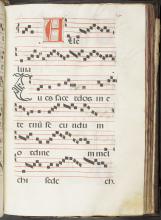 Alle
luia
Tu es sace rdos in e
te rnu se cundu m
ordine m mel
chi sede ch.